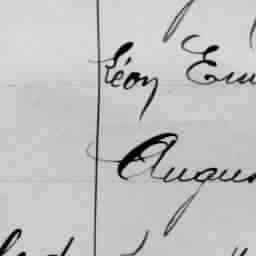 Léon Em
Augus